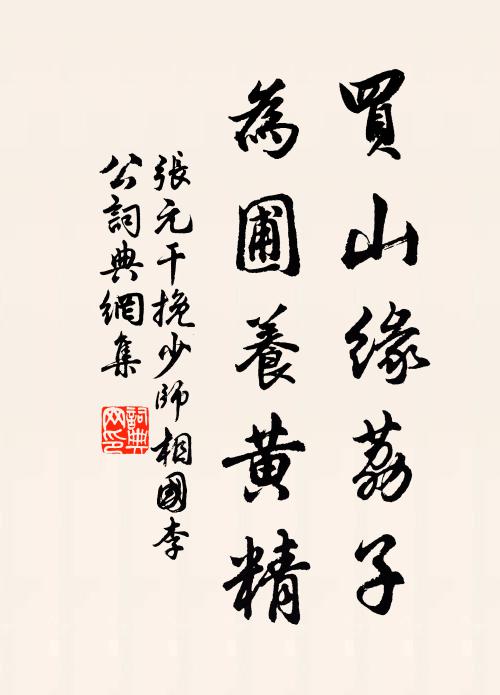 買山緣荔子
為圃養黃精
張元干挽少師相國李
公詞典網集
詞典
网印